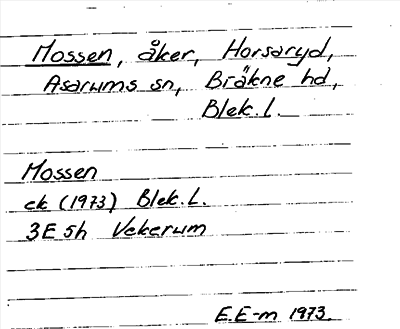 Mossen, åker, Horsaryd,
Asarums sn, Bräkne hd,
Blek.l.
Mossen
ek (1973) Blek.L.
3E 5h Vekerum
E.E-m 1973.